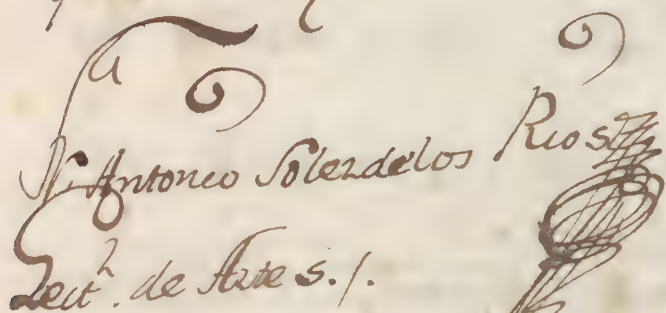 Fr. Antonio Soler de los Rios
Lect.ʳ de Artes./.